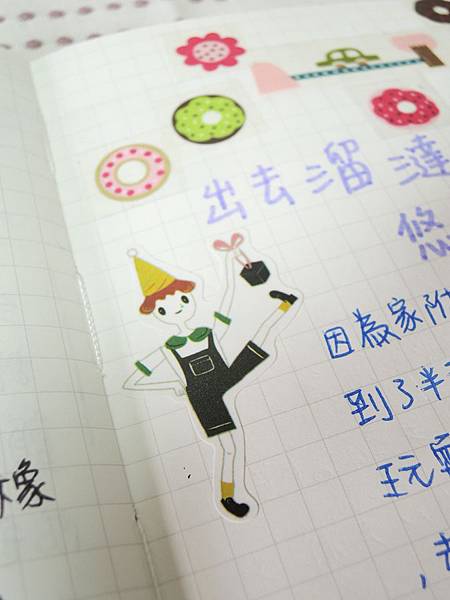 出去溜達
悠
因為家附
到了半
玩
像